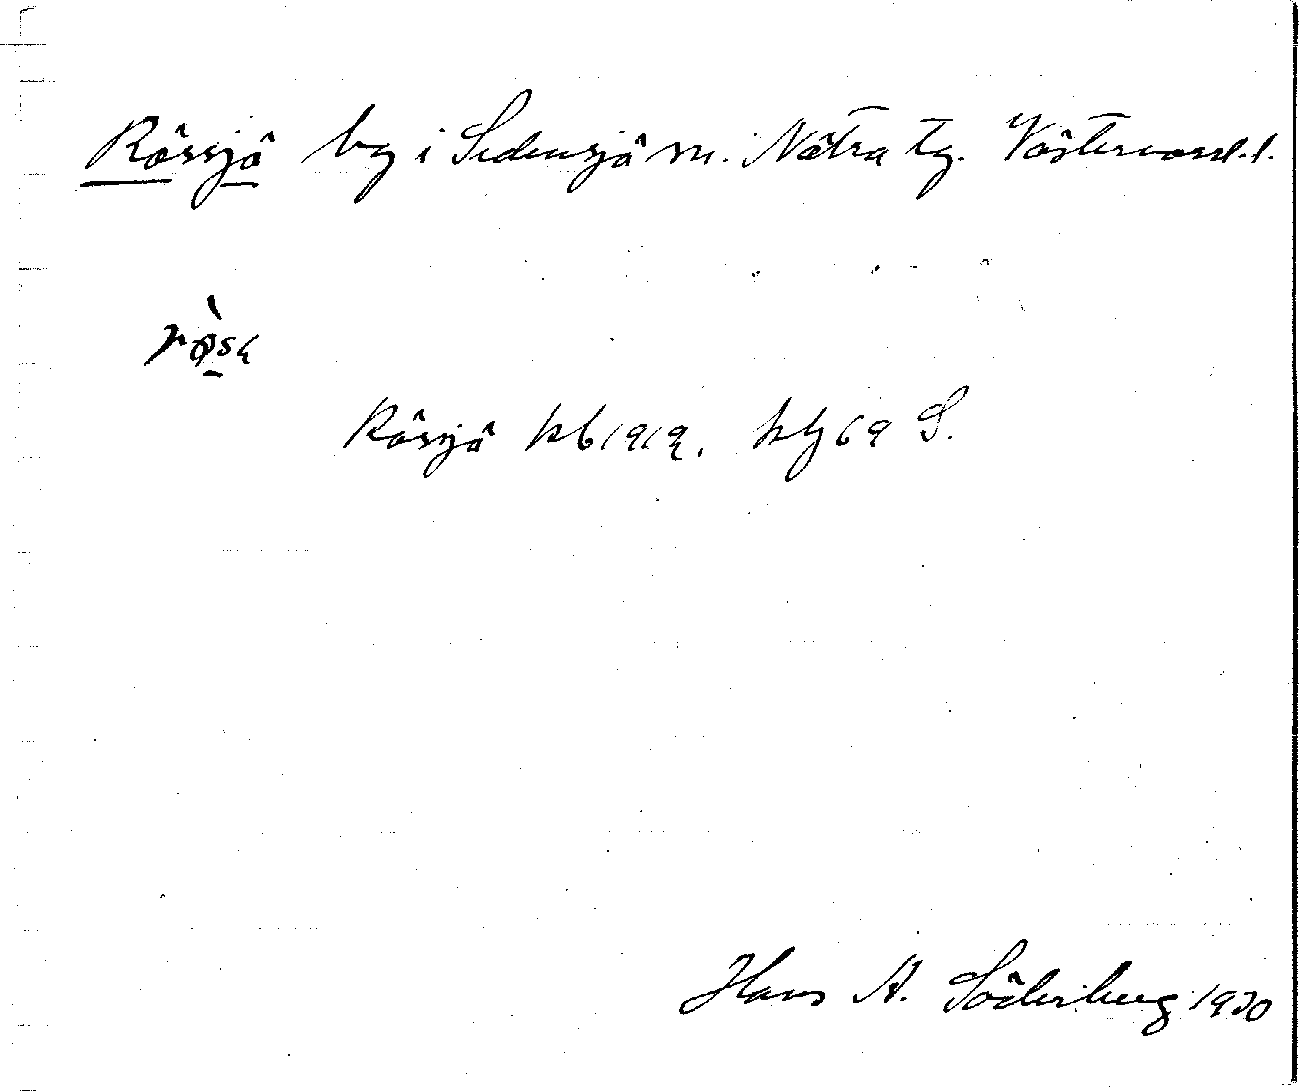 Rössjö by i Sidensjö sn. Nätra tg. Västernorrl.l.
Rössjö kb 1919. kbg 69 S.
Hans A. Söderberg 1930